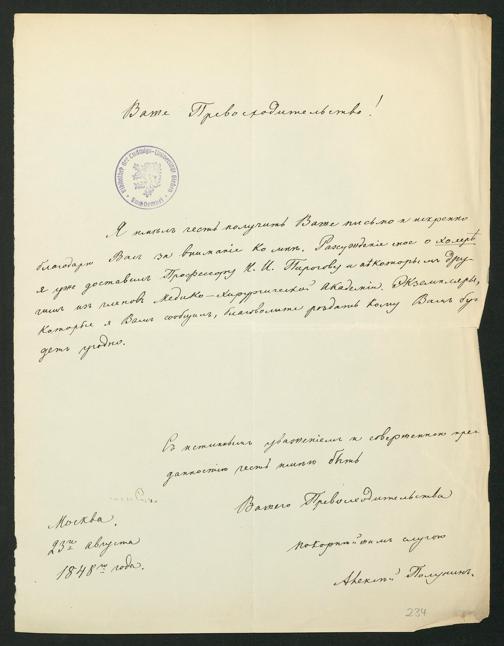 Ваше Превосходительство!
Я имѣлъ честь получить Ваше письмо и искренно
благодарю Васъ за вниманіе ко мнѣ. Разсужденіе мое о холерѣ
я уже доставилъ Профессору Н. И. Пирогову и нѣкоторымъ дру-
гимъ изъ членовъ Медико-Хирургической Академіи. Экземпляры,
которые я Вамъ сообщилъ, благоволите роздать кому Вамъ бу-
детъ угодно.
Съ истиннымъ уваженіемъ и совершенною пре-
данностію честь имѣю быть
Вашего Превосходительства
Москва.
23го августа
покорнѣйшимъ слугою
1848го года.
Алексѣй Полунинъ.
234